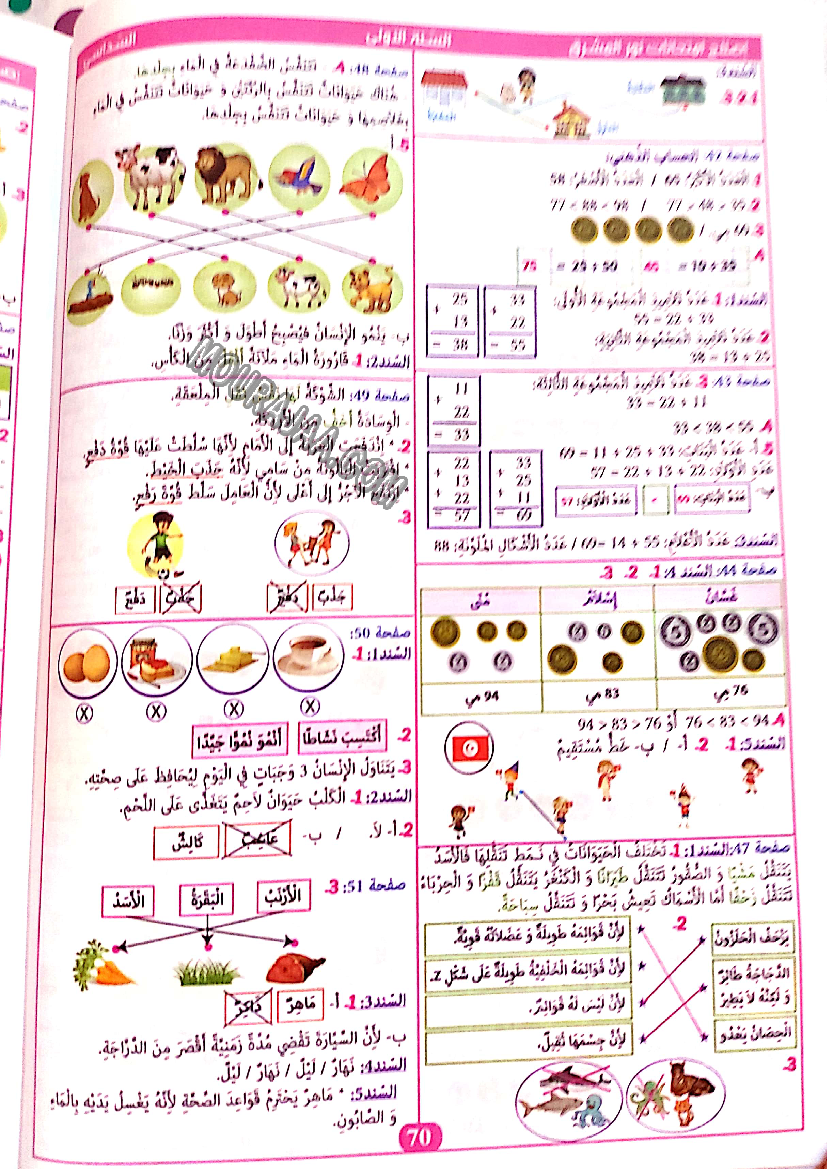 إصلاح امتحانات نور المشرق
السنة الأولى
السداسي
السند3:
3.2.1
صفحة 42: الحساب الذهني:
1. العدد الأكبر: 69 / العدد الأصغر: 58
2. 39 - 48 - 77 / 98 - 88 - 77
3. 69 مي /
4. 39 + 10 = 50 + 25 = 75
السند1: 1. عدد المجموعة الأولى:
33 + 22 = 55
33 + 22 = 55
25 + 13 = 38
2. عدد المجموعة الثانية:
25 + 13 = 38
صفحة 43: 3. عدد المجموعة الثالثة:
11 + 22 = 33
11 + 22 = 33
4. 55 > 38 > 33
5. أ. عدد البنات: 33 + 25 + 11 = 69
عدد الأولاد: 22 + 13 + 22 = 57
33 + 25 + 11 = 69
22 + 13 + 22 = 57
ب- عدد البنات: 69 عدد الأولاد: 57
السند3: عدد الأعلام: 55 + 14 = 69 / عدد الأشكال الملونة: 88
صفحة 44: السند 4: 1- 2- 3-
غسان إسلام منى
76 مي 83 مي 94 مي
4. 94 > 83 > 76 أو 76 < 83 < 94
السند5: 1- 2- أ- / ب- خط مستقيم
صفحة 47: السند1: 1- تختلف الحيوانات في نمط تنقلها فالأسد
يتنقل مشيا و الصقور تتنقل طيرانا و الكنغر يتنقل قفزا و الحرباء
تتنقل زحفا أما الأسماك تعيش بحرا و تتنقل سباحة.
2-
يزحف الحلزون
الدجاجة طائر
و لكنه لا يطير
الحصان يعدو
لأن قوائمه طويلة و عضلاته قوية.
لأن قوائمه الخلفية طويلة على شكل Z.
لأن ليس له قوائم.
لأن جسمها ثقيل.
3-
صفحة 48: 4. تتنفس الضفدعة في الماء بجلدها.
هناك حيوانات تتنفس بالرئتين و حيوانات تتنفس في الماء
بغلاصمها و حيوانات تتنفس بجلدها.
5. أ
ب- ينمو الإنسان فيصبح أطول و أكثر وزنا.
السند2: 1- قارورة الماء ملآنة أثقل من الكأس.
صفحة 49: الشوكة لها نفس ثقل الملعقة.
- الوسادة أخف من
2- * اندفعت إلى الأمام لأنها سلطت عليها قوة دفع.
البالونة من سامي لأنه جذب الخيط.
* ارتفع الآجر إلى أعلى لأن العامل سلط قوة رفع.
3-
جذب دفع
جذب دفع
صفحة 50:
السند1: 1-
2- أكتسب نشاطا أنمو نموا جيدا
3- يتناول الإنسان 3 وجبات في اليوم ليحافظ على صحته.
السند2: 1- الكلب حيوان لاحم يتغذى على اللحم.
2- أ- لا. / ب- عاشب كالش
صفحة 51: 3-
الأرنب البقرة الأسد
السند3: 1- أ- ماهر ذاكر
ب- لأن السيارة تقضي مدة زمنية أقصر من الدراجة.
السند4: نهار / ليل / نهار / ليل.
السند5: * ماهر يحترم قواعد الصحة لأنه يغسل يديه بالماء
و الصابون.
70
MOURAJAA.COM